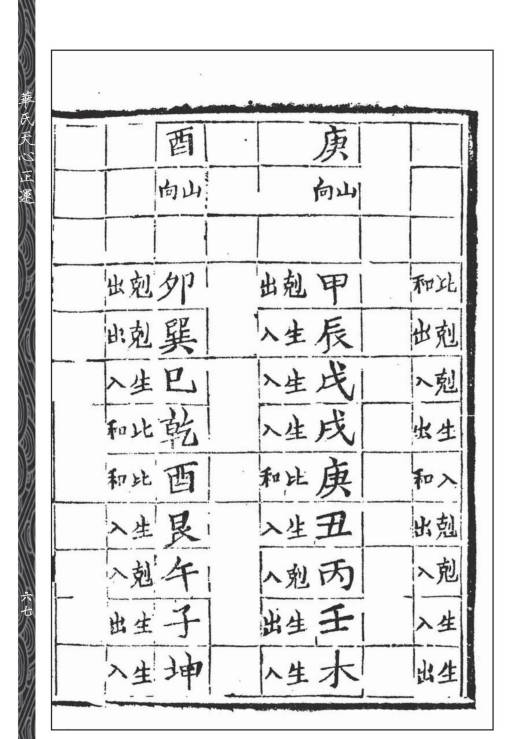 華氏天心正運
六七
比和 剋出 剋入 生出 入和 剋出 剋入 生入 生出
庚 山向 甲 辰 戌 戌 庚 丑 丙 壬 木
剋出 生入 生入 生入 比和 生入 剋入 生出 生入
酉 山向 卯 巽 巳 乾 酉 艮 午 子 坤
剋出 剋出 生入 比和 比和 生入 剋入 生出 生入